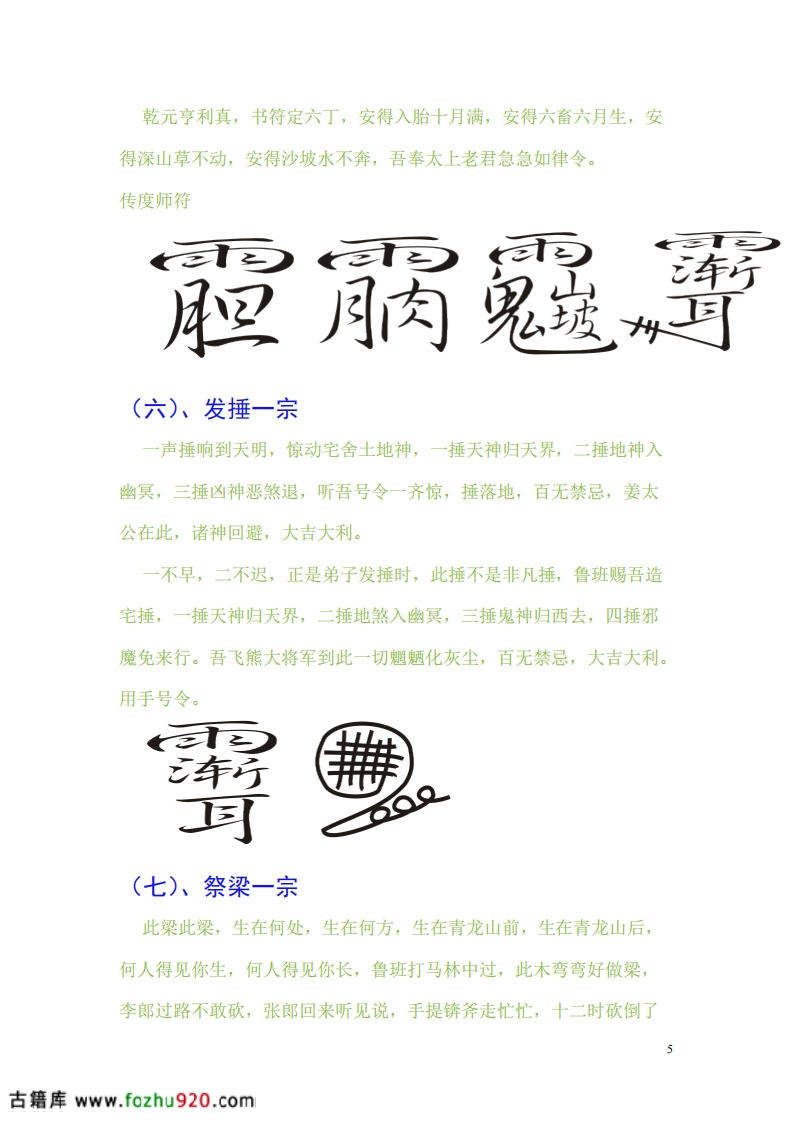 乾元亨利真，书符定六丁，安得入胎十月满，安得六畜六月生，安
得深山草不动，安得沙坡水不奔，吾奉太上老君急急如律令。
传度师符
（六）、发捶一宗
一声捶响到天明，惊动宅舍土地神，一捶天神归天界，二捶地神入
幽冥，三捶凶神恶煞退，听吾号令一齐惊，捶落地，百无禁忌，姜太
公在此，诸神回避，大吉大利。
一不早，二不迟，正是弟子发捶时，此捶不是非凡捶，鲁班赐吾造
宅捶，一捶天神归天界，二捶地煞入幽冥，三捶鬼神归西去，四捶邪
魔免来行。吾飞熊大将军到此一切魍魉化灰尘，百无禁忌，大吉大利。
用手号令。
（七）、祭梁一宗
此梁此梁，生在何处，生在何方，生在青龙山前，生在青龙山后，
何人得见你生，何人得见你长，鲁班打马林中过，此木弯弯好做梁，
李郎过路不敢砍，张郎回来听见说，手提锛斧走忙忙，十二时砍倒了
5
古籍库 www.fozhu920.com